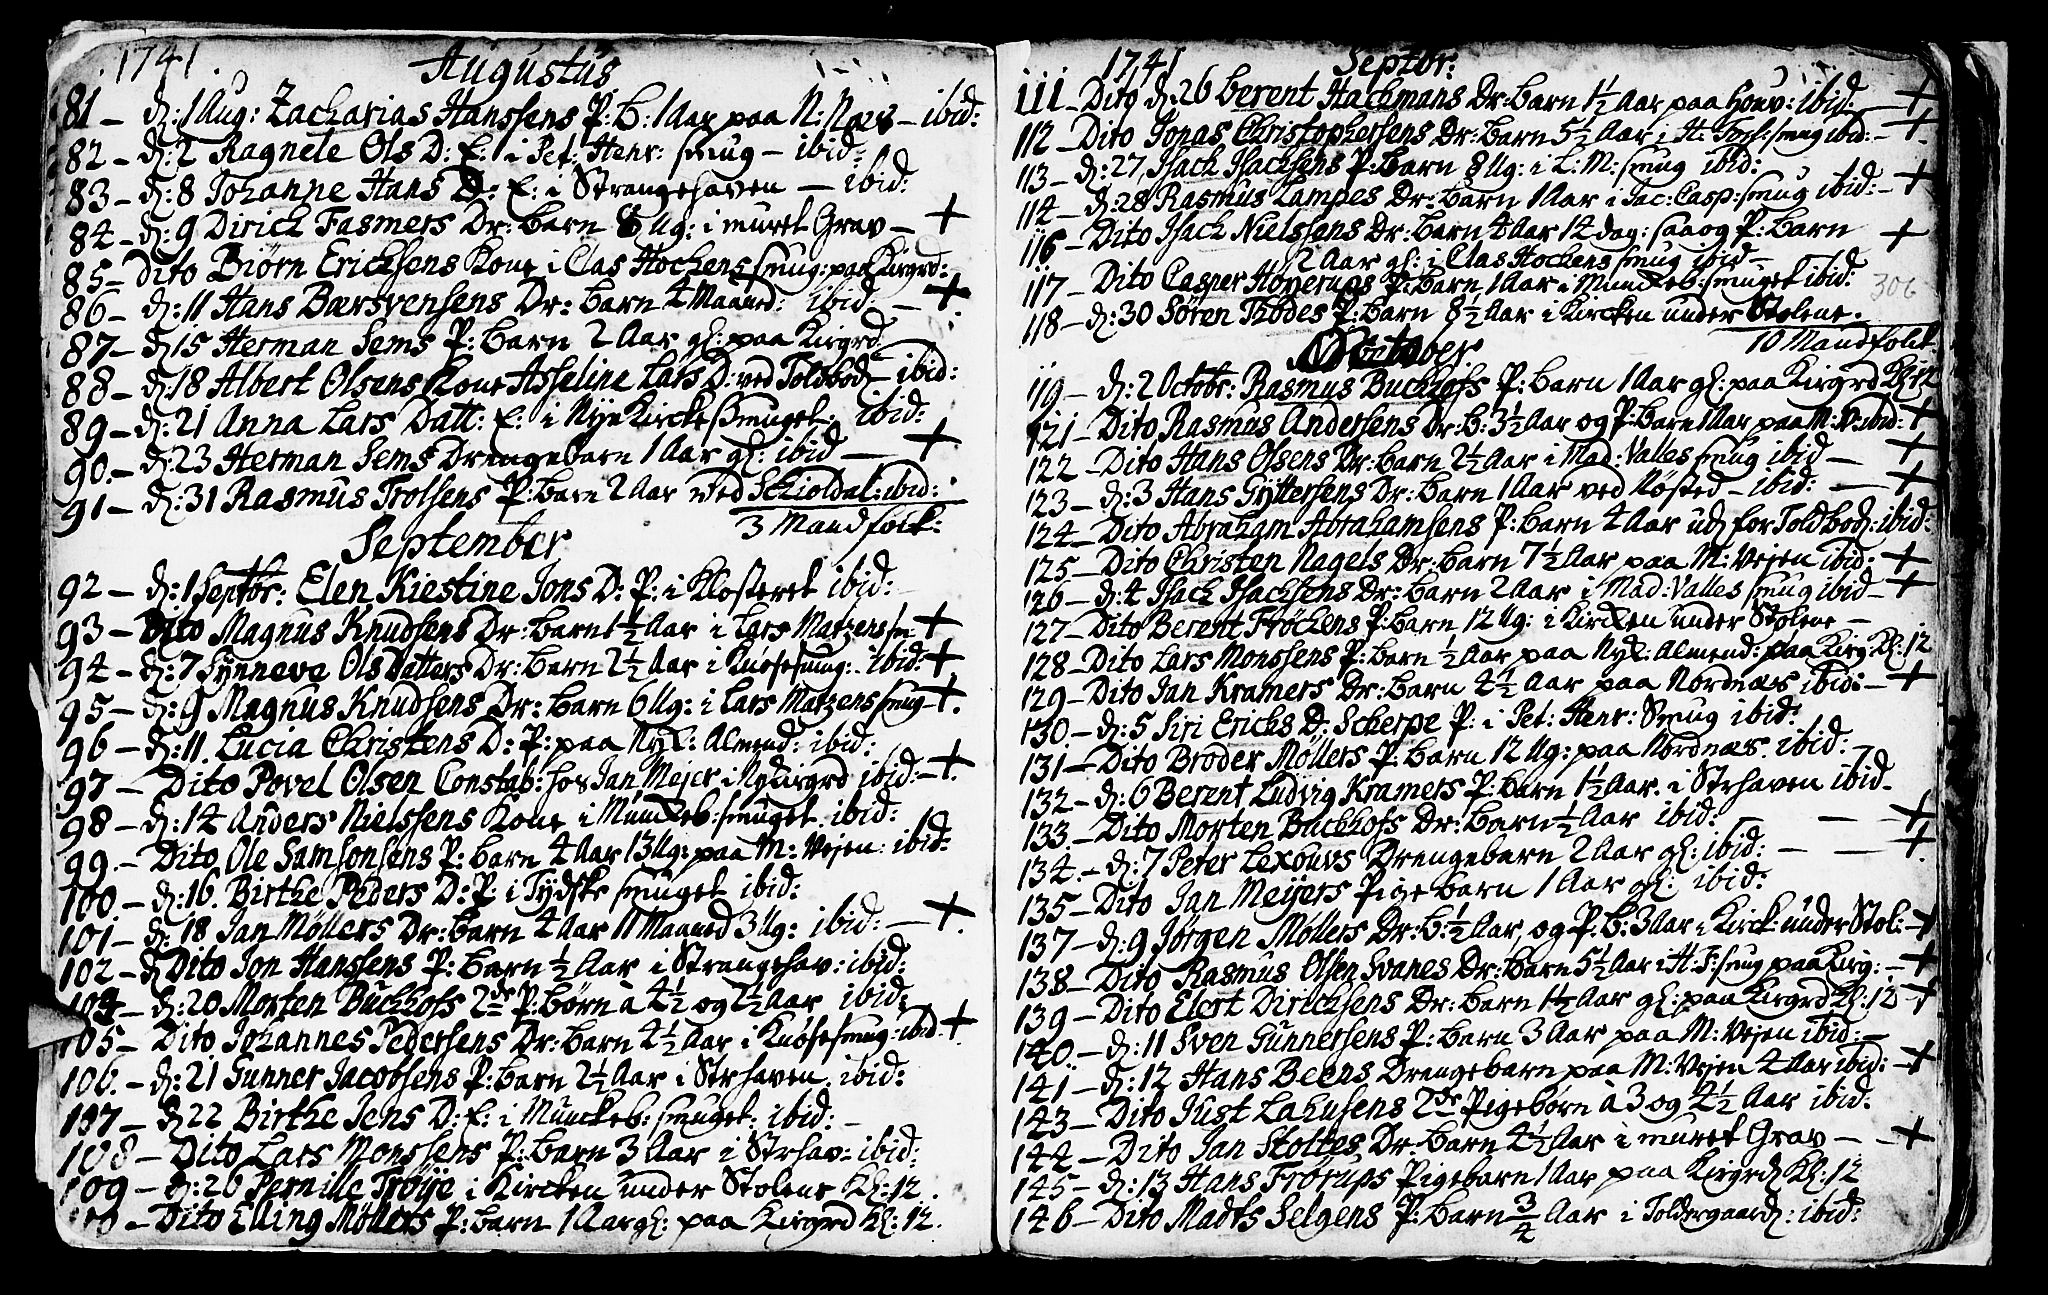 1741
Augustus
81 - d: 1 Aug: Zacharias Hanssens P: B: 1 Aar paa N: - ibid:
82 - d: 2 Ragnete Ols D: E: i Pet: Henr: smug - ibid:
83 - d: 8 Johanne Hans D: E: i Strangehaven - ibid:
84 - d: 9 Dirick Fasmers Dr: barn 8 Ug: i muret Grav - +
85 - Dito Biørn Ericksens Kone i Clas Hockens smug: paa Kirgrd:
86 - d: 11 Hans Bærsvensens Dr: barn 4 Maaned: ibid: - +
87 - d 15 Herman Sems P: barn 2 Aar gl: paa Kirgrd
88 - d: 18 Albert Olsens Kone Asseline Lars D: ved Toldbod - ibid:
89 - d: 21 Anna Lars Datt: E: i Nye Kirckesmuget: ibid:
90 - d: 23 Herman Sems Drengebarn 1 Aar gl: ibid - +
91 - d: 31 Rasmus Trolsens P: barn 2 Aar ved Schioldal: ibid:
3 Mandfolck:
September
92 - d: 1 Septbr: Elen Kiestine Jons D: P: i Klosteret ibid:
93 - Dito Magnus Knudsens Dr: barn 1½ Aar i Lars Matzens sm +
94 - d: 7 Synneve Ols Datters Dr: barn 2½ Aar i Knøsesmug: ibid: +
95 - d: 9 Magnus Knudsens Dr: barn 6 Ug: i Lars Matzens smug +
96 - d: 11 Lucia Christens D: P: paa Nyk: Almend: ibid:
97 - Dito Povel Olsen Constab: hos Jan Mejer i Nykirgrd ibid: - +
98 - d: 14 Anders Nielssens Kone i Munkeb: smuget ibid:
99 - Dito Ole Samsonsens P: barn 4 Aar 13 Ug: paa M: Vejen: ibid:
100 - d: 16. Birthe Peders D: P: i Tydske smuget ibid:
101 - d: 18 Jan Møllers Dr: barn 4 Aar 11 Maaned 3 Ug: ibid: - +
102 - Dito Jon Hanssens P: barn ½ Aar i Strangehav: ibid:
104 - d: 20 Morten Buchhofs 2de P: børn à 4½ og 2½ Aar ibid:
105 - Dito Johannes Pedersens Dr: barn 4½ Aar i Knøsesmug: ibid: +
106 - d: 21 Gunner Jacobsens P: barn 2½ Aar i Strhaven ibid:
107 - d 22 Birthe Jens D: E: i Munckeb: smuget: ibid: -
108 - Dito Lars Monssens P: barn 3 Aar i Strhav: ibid:
109 - d: 26 Pernille Trøye i Kircken under Stolene Kl: 12
110 - Dito Elling Møllers P: barn 1 Aar gl: paa Kirgrd Kl: 12.
1741 Septbr:
111 - Dito d: 26 Berent Hackmans Dr: barn 1½ Aar paa Houv: ibid: - +
112 - Dito Jonas Christophersens Dr: barn 5½ Aar i H: smug ibid: - +
113 - d: 27 Isack Isacksens P: barn 8 Ug: i L: M: smug ibid:
114 - d: 28 Rasmus Lampes Dr: barn 1 Aar i Jac: Casp: smug ibid: - +
116 - Dito Isack Nielssens Dr: barn 4 Aar 14 dag: saa og P: barn
2 Aar gl: i Clas Hockens smug ibid - +
117 - Dito Casper Høyerups P: barn 1 Aar i Munkeb: smuget ibid:
306
118 - d: 30 Søren Thodes P: barn 8½ Aar i Kircken under Stolene.
10 Mandfolck
October
119 - d: 2 Octobr: Rasmus Buchhofs P: barn 1 Aar gl: paa Kirgrd Kl: 12
121 - Dito Rasmus Andersens Dr: b: 3½ Aar og P: barn 1 Aar paa M: V: ibid: +
122 - Dito Hans Olsens Dr: barn 2½ Aar i Mad: Valles smug ibid - +
123 - d: 3 Hans Gyttersens Dr: barn 1 Aar ved Nøsted - ibid: - +
124 - Dito Abraham Abrahamsens P: barn 4 Aar ud for Toldbod: ibid:
125 - Dito Christen Nagels Dr: barn 7½ Aar paa M: Vejen ibid: +
126 - d: 4 Isack Isacksens Dr: barn 2 Aar i Mad: Valles smug ibid - +
127 - Dito Berent Frøckens P: barn 12 Ug: i Kircken under Stolene -
128 - Dito Lars Monssens P: barn ½ Aar paa Nyk: Almend: paa Kirg Kl: 12
129 - Dito Jan Kramers Dr: barn 4½ Aar paa Nordnæs ibid: - +
130 - d: 5 Siri Ericks D: Scherpe P: i Pet: Henr: Smug ibid:
131 - Dito Broder Møllers P: barn 12 Ug: paa Nordnæs ibid:
132 - d: 6 Berent Ludvig Kramers P: barn 1½ Aar i Strhaven ibid -
133 - Dito Morten Buchhofs Dr: barn ½ Aar ibid: - - +
134 - d: 7 Peter Lexouvs Drengebarn 2 Aar gl: ibid: - - +
135 - Dito Jan Meyers Pigebarn 1 Aar gl: ibid:
137 - d: 9 Jørgen Møllers Dr: b: ½ Aar, og P: b: 3 Aar i Kirck: under Stol: +
138 - Dito Rasmus Olsen Svanes Dr: barn 5½ Aar i H: F: smug paa Kirg: - +
139 - Dito Elert Diricksens Dr: barn 1½ Aar gl: paa Kirgrd Kl: 12 +
140 - d: 11 Sven Gunnersens P: barn 3 Aar paa M: Vejen ibid: -
141 - d: 12 Hans Beens Drengebarn paa M: Vejen 4 Aar ibid: - +
143 - Dito Just Lahusens 2de Pigebørn à 3 og 4½ Aar ibid:
144 - Dito Jan Stoltes Dr: barn 4½ Aar i muret Grav - - +
145 - d: 13 Hans Frørups Pigebarn 1 Aar paa Kirgrd Kl: 12
146 - Dito Madts Selgens P: barn ¾ Aar i Toldergaard: ibid: